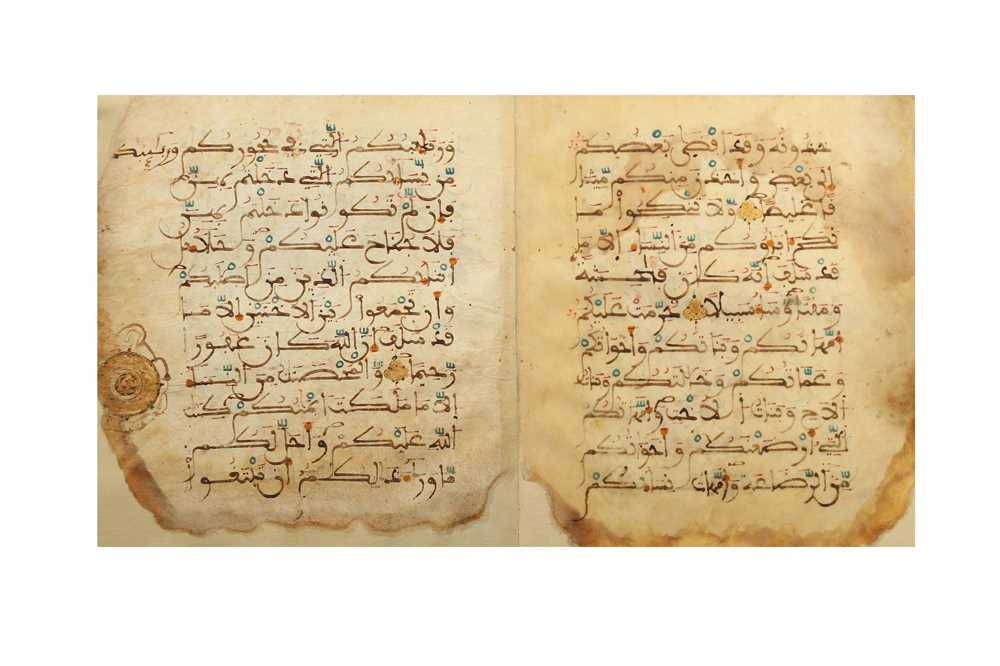 خذونه وقد افضى بعضكم
الى بعض واخذن منكم ميثا
قا غليظا ولا تنكحوا ما
نكح اباؤكم من النساء الا ما
قد سلف انه كان فاحشة
ومقتا وساء سبيلا حرمت عليكم
امهاتكم وبناتكم واخواتكم
وعماتكم وخالتكم وبنات
الاخ وبنات الاخت وامهاتكم
التي ارضعنكم واخواتكم
من الرضاعة وامهات نسائكم
وربائبكم التي في حجوركم
من نسائكم التي دخلتم بهن
فإن لم تكونوا دخلتم بهن
فلا جناح عليكم وحلائل
أبنائكم الذين من اصلبكم
وأن تجمعوا بين الاختين إلا ما
قد سلف إن الله كان غفورا
رحيما والمحصنت من النساء
إلا ما ملكت أيمنكم كتب
الله عليكم وأحل لكم
ما وراء ذلكم أن تبتغوا